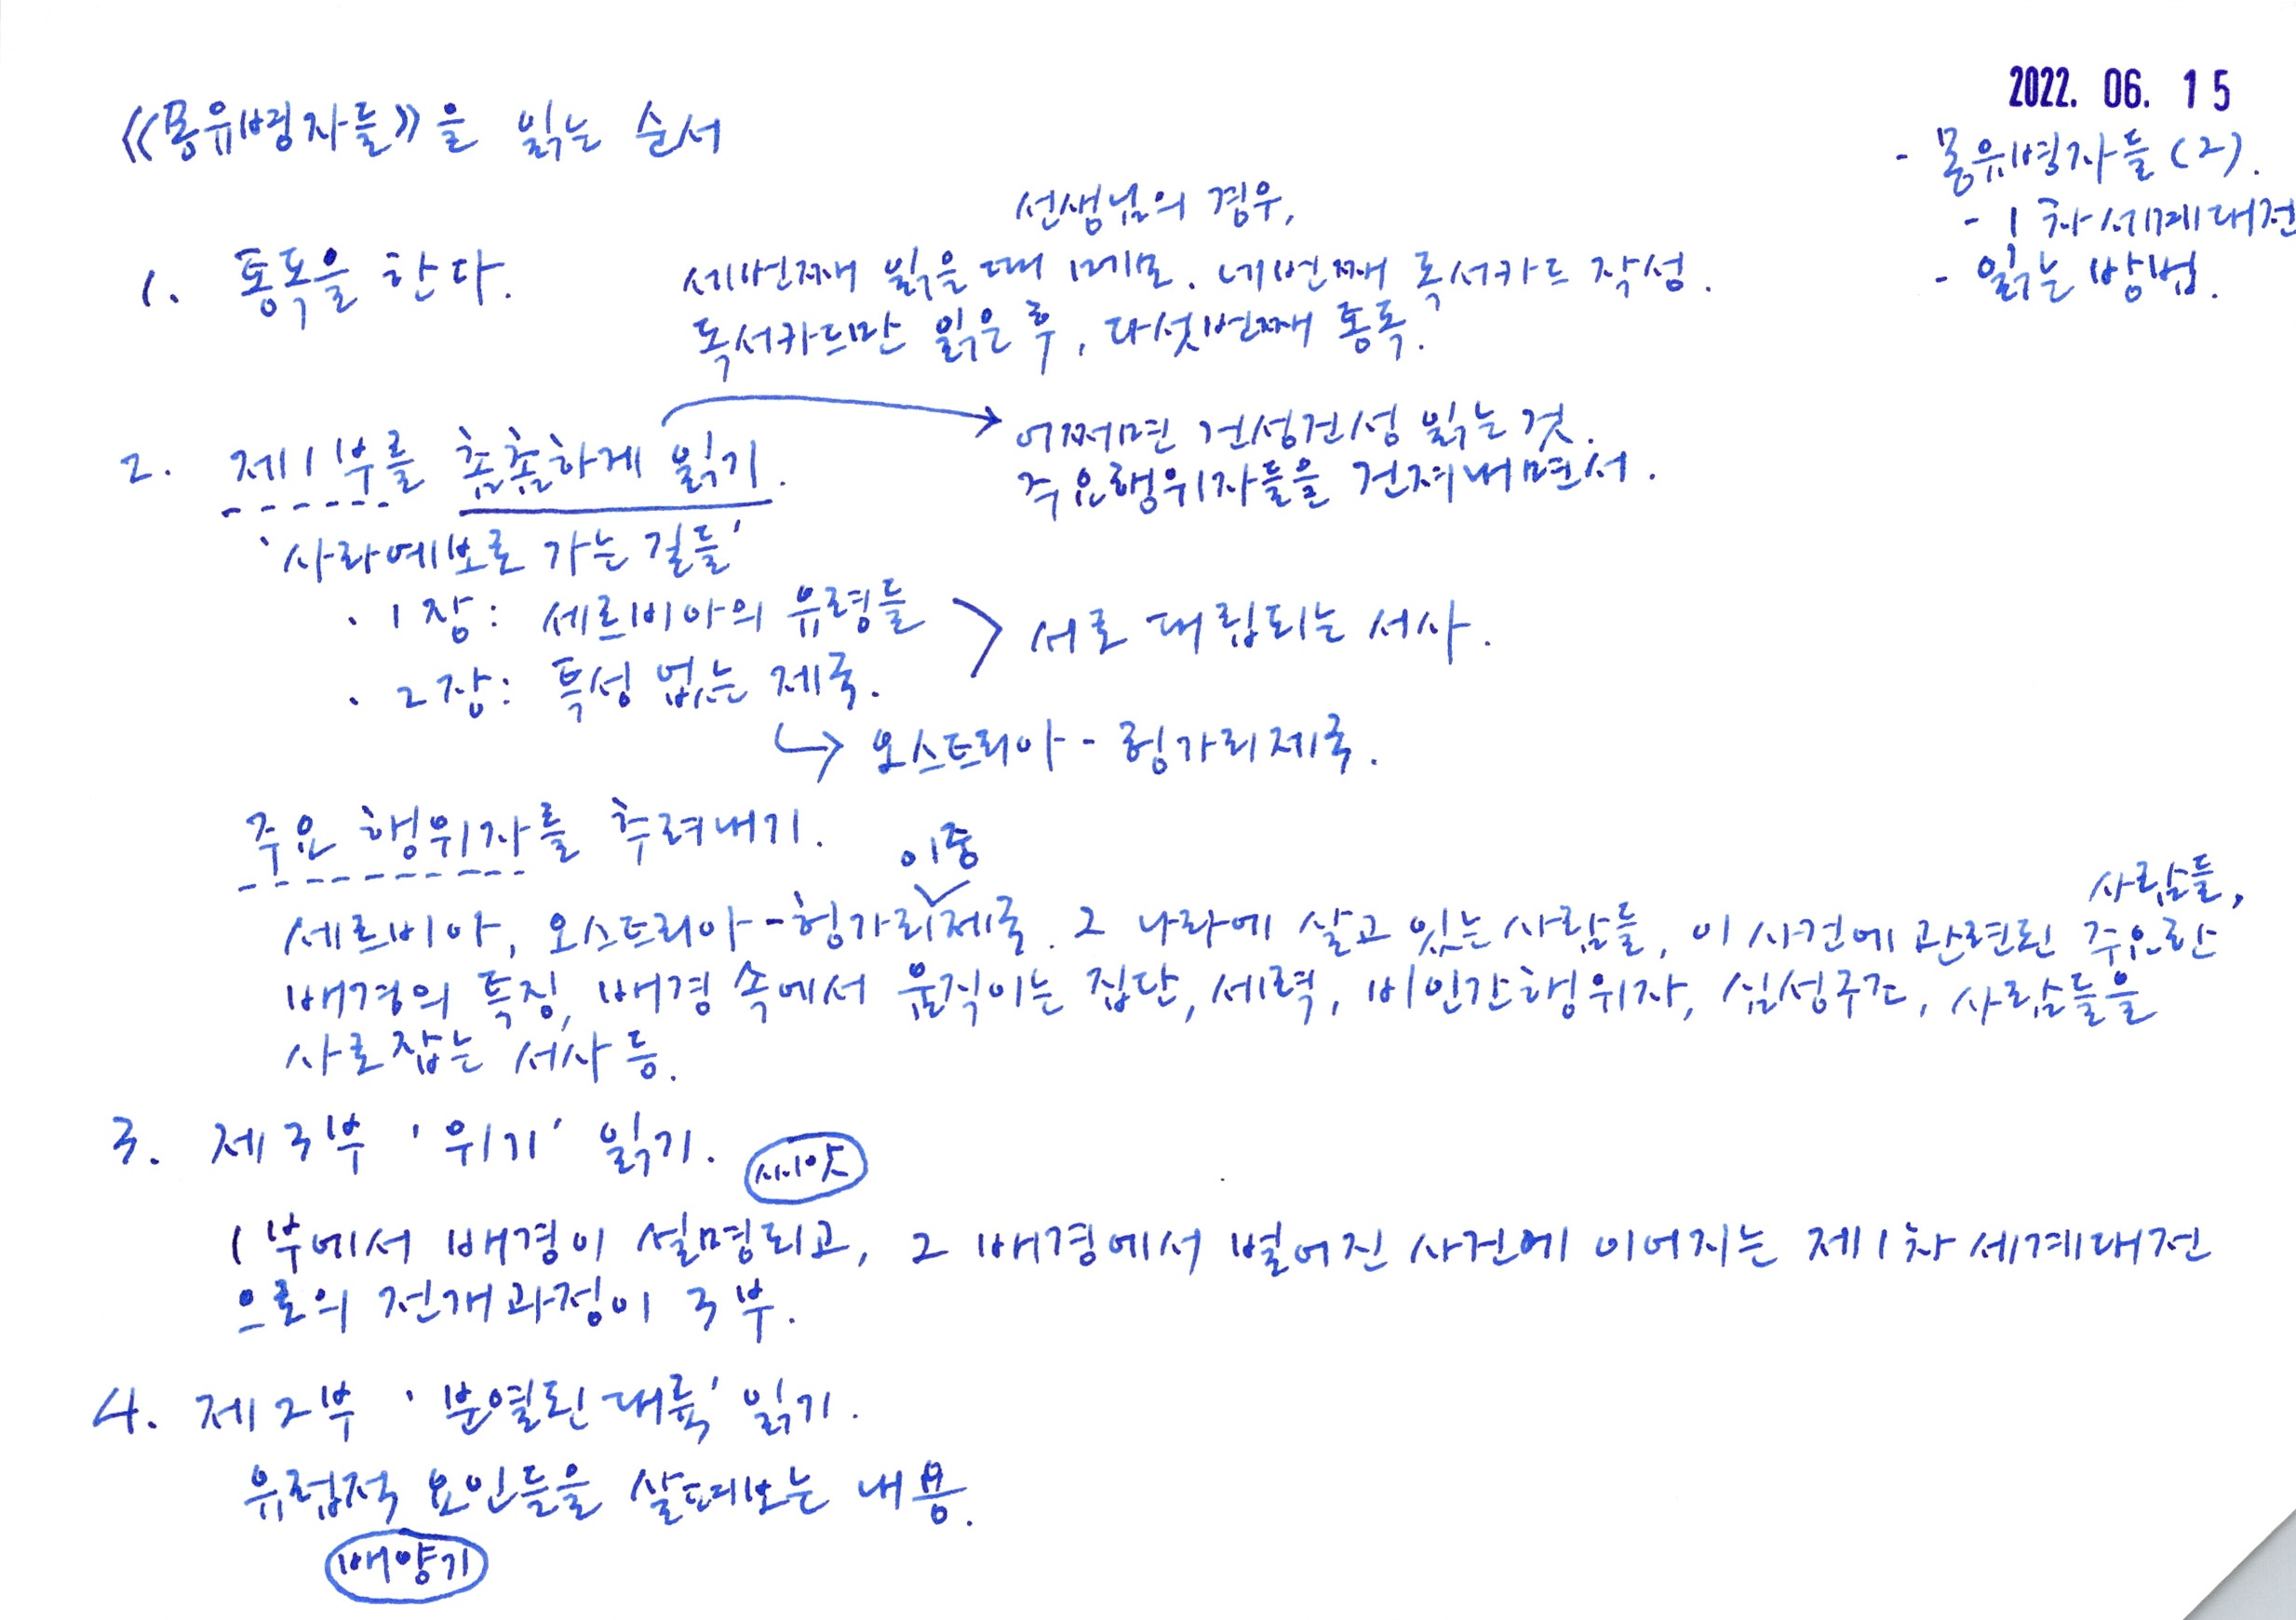 2022. 06. 15
- 몽유병자들 (2).
- 1차세계대전
- 읽는 방법.
《몽유병자들》을 읽는 순서
1. 통독을 한다.
선생님의 경우,
세번째 읽을 때 메모. 네번째 독서카드 작성.
독서카드만 읽은 후, 다섯번째 통독.
2. 제1부를 촘촘하게 읽기.
→ 어쩌면 건성건성 읽는 것.
주요행위자들을 건져내면서.
'사라예보로 가는 길들'
· 1장: 세르비아의 유령들
· 2장: 특성 없는 제국.
> 서로 대립되는 서사.
↳ 오스트리아-헝가리제국.
주요 행위자를 추려내기.
이중
사람들,
세르비아, 오스트리아-헝가리제국. 그 나라에 살고 있는 사람들, 이 사건에 관련된 주요한
배경의 특징, 배경 속에서 움직이는 집단, 세력, 비인간행위자, 심성구조, 사람들을
사로잡는 서사 등.
3. 제3부 '위기' 읽기.
씨앗
1부에서 배경이 설명되고, 그 배경에서 벌어진 사건에 이어지는 제1차세계대전
으로의 전개과정이 3부.
4. 제2부 '분열된 대륙' 읽기.
유럽적 요인들을 살펴보는 내용.
배양기